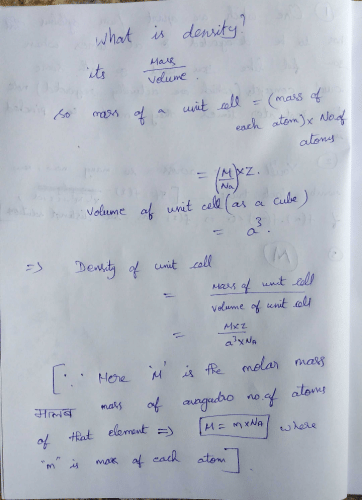 What is density?
its Mass
Volume.
so mass of a unit cell = (mass of
each atom) x No.of
atoms
= (M/NA) x Z.
Volume of unit cell (as a cube)
= a³.
=> Density of unit cell
= Mass of unit cell
volume of unit cell
= M x Z
a³ x NA
[∵ Here 'M' is the molar mass
मतलब mass of avagadro no.of atoms
of that element => M = m x NA where
"m" is mass of each atom]